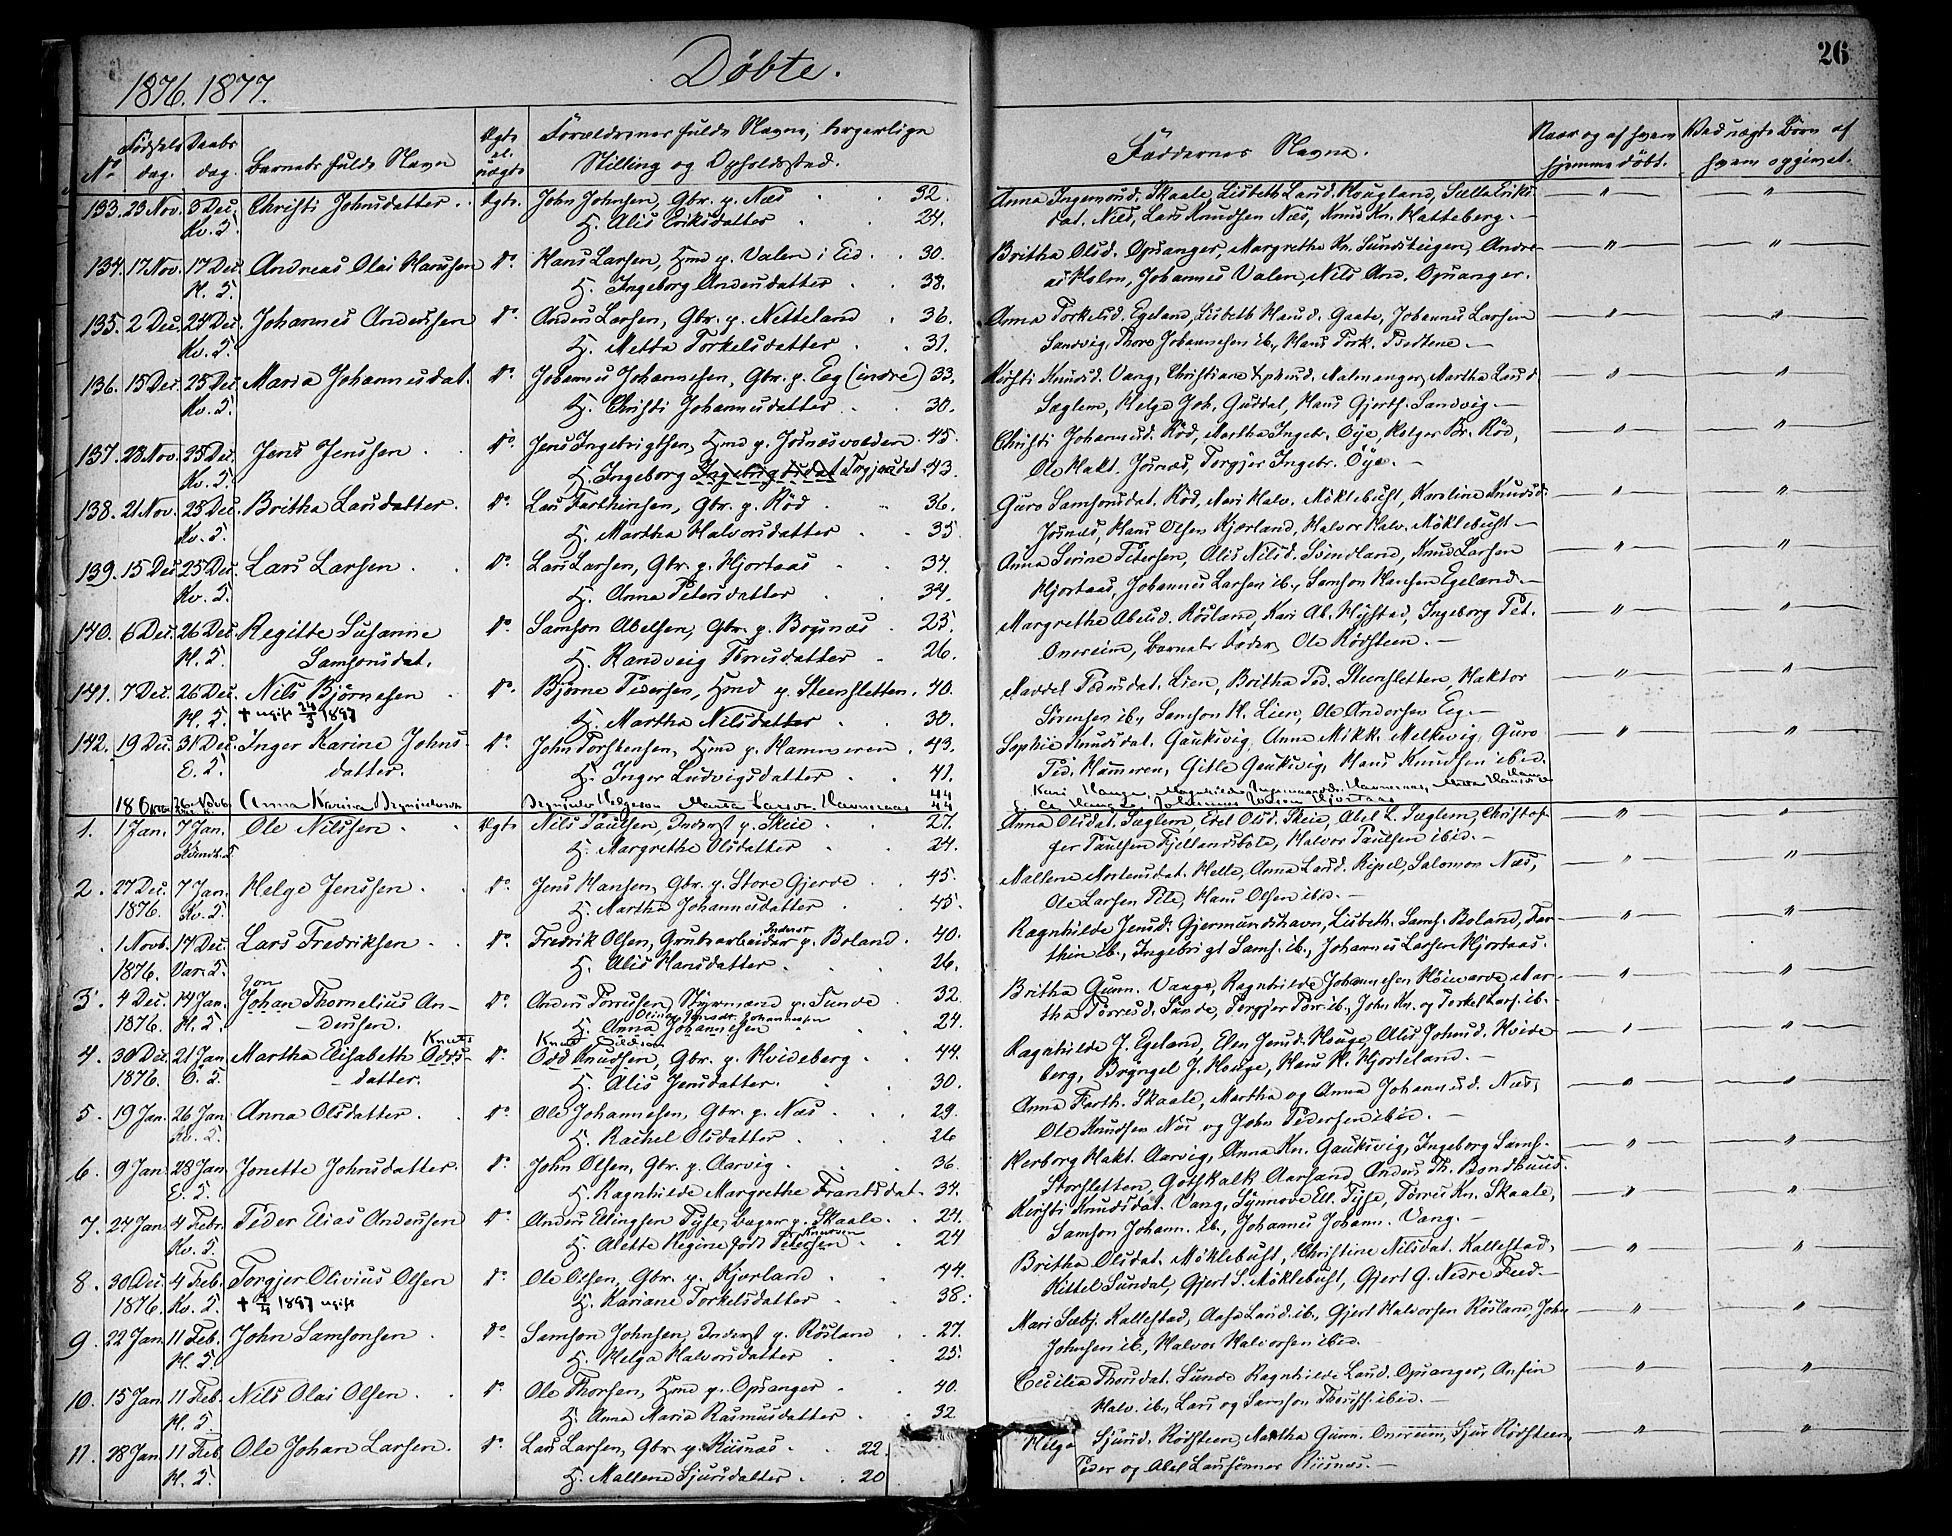 26
1876. 1877. Døbte.
No Fødsels dag. Daabs dag. Barnets fulde Navn Ægte el. uægte Forældrenes fulde Navne, borgerlige Stilling og Opholdssted. Faddernes Navne. Naar og af hvem hjemmedøbt. Ved uægte Børn af hvem opgivet.
133. 23 Nov. 3 Dec. Christi Johnsdatter. Ægte. John Johnsen, Gbr. p. Næs 32. Anna Ingemund. Skaale, Lisbeth Larsd. Hougland, Sælle Eriks-
Kv. S. H. Alis Eriksdatter 24. dat. Næs, Lars Knudsen Næs, Knud Kn. Hatteberg.
134. 17 Nov. 17 Dec. Andreas Olai Hansen do Hans Larsen, Hmd p. Valen i Eid 30. Britha Olsd. Opsanger, Margrethe Kn. Sundsteigen, Andre-
H. S. H. Ingeborg Andersdatter 38. as Holm, Johannes Valen, Nils And. Opsanger.
135. 2 Dec. 24 Dec. Johannes Andersen do Anders Larsen, Gbr. p. Netteland 36. Anna Torkelsd. Egeland, Lisbeth Hansd. Gaate, Johannes Larsen
Kv. S. H. Metta Torkelsdatter 31. Sandvig, Thore Johannesen ib., Hans Tork.
136. 15 Dec. 25 Dec. Maria Johannesdat. do Johannes Johannesen, Gbr. p. Eeg (indre) 33. Kirsti Knudsd. Vang, Christiane Malmanger, Martha Larsd.
Kv. S. H. Christi Johannesdatter 30. Sæglem, Helge Joh. Guddal, Hans Gjerth. Sandvig.
137. 28 Nov. 25 Dec. Jens Jensen do Jens Ingebrigtsen, Hmd p. Josnæsvolden 45. Christi Johannesd. Rød, Martha Ingebr. Øye, Holger Br. Rød,
Kv. S. H. Ingeborg Ingebrigtsdat Torgjersdat. 43. Ole Hakt. Josnæs, Torgjer Ingebr. Øye.
138. 21 Nov. 25 Dec. Britha Larsdatter. do Lars Farthinsen, Gbr. p. Rød 36. Guro Samsonsdat. Rød, Mari Halv. Møklebust, Karoline Knudsd.
Kv. S. H. Martha Halvorsdatter 35. Josnæs, Hans Olsen Kjærland, Halvor Halv. Møklebust
139. 15 Dec 25 Dec. Lars Larsen do Lars Larsen, Gbr. p. Hjortaas 34. Anna Serine Petersen, Alis Nilsd. Svindland, Knud Larsen
Kv. S. H. Anna Petersdatter 34. Hjortaas, Johannes Larsen ib., Samson Hansen Egeland.
140. 6 Dec. 26 Dec Regitte Susanne do Samson Abelsen, Gbr. p. Bogsnæs 25. Margrethe Abelsd. Røsland, Kari Ab. Hystad, Ingeborg Ped.
H. S. Samsonsdat. H. Randveig Toresdatter 26. Onereim, Barnets Fader, Ole Rødsteen.
141. 7 Dec. 26 Dec. Nils Bjørnesen do Bjørne Pedersen, Hmd p. Steensletten. 40. Maddel Pedersdat. Lien, Britha Ped. Steensletten, Haktor
H. S. † ugift 24/5 1897 H. Martha Nilsdatter 30. Sørensen ib., Samson H. Lien, Ole Andersen Eeg.
142. 19 Dec. 31 Dec. Inger Karine Johns- do John Torstensen, Hmd p. Hammeren 43. Sophie Knudsdat. Gauksvig, Anna Mikk. Melkevig, Guro
E. S. datter. H. Inger Ludvigsdatter 41. Ped. Hammeren, Gitle Gauksvig, Hans Knudsen ibid.
18 Oktbr 26 Novb. Anna Karina Brynjulvsen Brynjulv Helgeson Marta Larsen Havneraas 44 44 Kari Hauge, Magnhilde Ingemannsd. Havneraas, Metta Hansd. Hauge
L. O. Hauge, Johannes Larson Hjortaas
1. 1 Jan. 7 Jan. Ole Nilssen Ægte Nils Paulsen, Inderst p. Skeie 27. Anna Olsdat. Sæglem, Edel Olsd. Skeie, Abel L. Sæglem, Christof-
Kvindh. S. H. Margrethe Olsdatter 24. fer Paulsen Fjellandsbole, Halvor Paulsen ibid.
2. 27 Dec. 7 Jan. Helge Jenssen do Jens Hansen, Gbr. p. Store Gjerde 45. Mallene Mortensdat. Helle, Anna Larsd. Ripel, Salomon Næs,
1876. Kv. S. H. Martha Johannesdatter 45. Ole Larsen Pile, Hans Olsen ibid.
1 Novb. 17 Dec. Lars Fredriksen do Fredrik Olsen, Grubearbeider Inderst p. Boland. 40. Ragnhilde Jensd. Gjermundshavn, Lisbeth. Sams. Boland, Far-
1876. Var. S. H. Alis Hansdatter 26. thin ib., Ingebrigt Sams. ib., Johannes Larsen Hjortaas.
3. 4 Dec. 14 Jan. Jon Johan Thornelius An- do Anders Torresen, Styrmand p. Sunde 32. Britha Gunn. Vaage, Ragnhilde Johannesen Høievarde, Mar-
1876. H. S. dersen. H. Anna Johannesen Oline Jensdr. Johannessen 24. tha Torresd. Sunde, Torgjer Torr. ib., John Kn. og Torkel Lars. ib.
4. 30 Dec. 21 Jan. Martha Elisabeth Odds- Knuts do Odd Knudsen, Gbr. p. Hvideberg 44. Ragnhilde J. Egeland, Elen Jensd. Houge, Alis Johnsd. Hvide-
1876. Ø. S. datter. H. Alis Jensdatter. 30. berg, Bryngel J. Houge, Hans H. Hjorteland.
5. 19 Jan. 26 Jan. Anna Olsdatter do Ole Johannesen, Gbr. p. Næs 29. Anna Farth. Skaale, Martha og Anna Johannesd. Næs,
Kv. S. H. Rachel Olsdatter 26 Ole Knudsen Næs og John Pedersen ibid.
6. 9 Jan. 28 Jan. Jonette Johnsdatter. do John Olsen, Gbr. p. Aarvig 36. Herborg Hakt. Aarvig, Anna Kn. Gauksvig, Ingeborg Sams.
E. S. H. Ragnhilde Margrethe Frantsdat. 34. Storsletten, Gotskalk Aarsand, Anders Th. Bondhuus.
7. 24 Jan. 4 Febr. Peder Elias Andersen do Anders Elingsen Tysse, Bager p. Skaale 24. Kirsti Knudsdat. Vang, Synnove Ell. Tysse, Torres Kn. Skaale,
Kv. S. H. Alette Regine født Petersen Knutsen 24 Samson Johann. ib., Johannes Johann. Vang.
8. 30 Dec. 4 Feb. Torgjer Olivius Olsen do Ole Olsen, Gbr. p. Kjerland 44. Britha Olsdat. Møklebust, Christine Nilsdat. Kallestad,
1876. Kv. S. † 1897 ugift H. Kariane Torkelsdatter 38. Kittel Sundal, Gjert S. Møklebust, Gjert G. Nedre Feed.
9. 22 Jan. 11 Feb. John Samsonsen do Samson Johnsen, Inderst p. Røsland 27. Mari Sæbj. Kallestad, Aasa Larsd. ib., Gjert Halvorsen Røsland, John
H. S. H. Helga Halvorsdatter 25. Johnsen ib., Halvor Halvorsen ibid.
10. 15 Jan. 11 Feb. Nils Olai Olsen do Ole Thorsen, Hmd p. Opsanger 40. Cecilia Thorsdat. Sunde Ragnhilde Larsd. Opsanger, Anfin
H. S. H. Anna Maria Rasmusdatter 32 Halv. ib., Lars og Samson ibid.
11. 28 Jan. 11 Feb. Ole Johan Larsen. do Lars Larsen, Gbr. p. Riisnæs 22. Helga Sjursd. Rødsteen, Martha Gunn. Onereim, Sjur Rødsteen
H. S. H. Mallene Sjursdatter 20 Peder og Abel Larssønner Riisnæs.